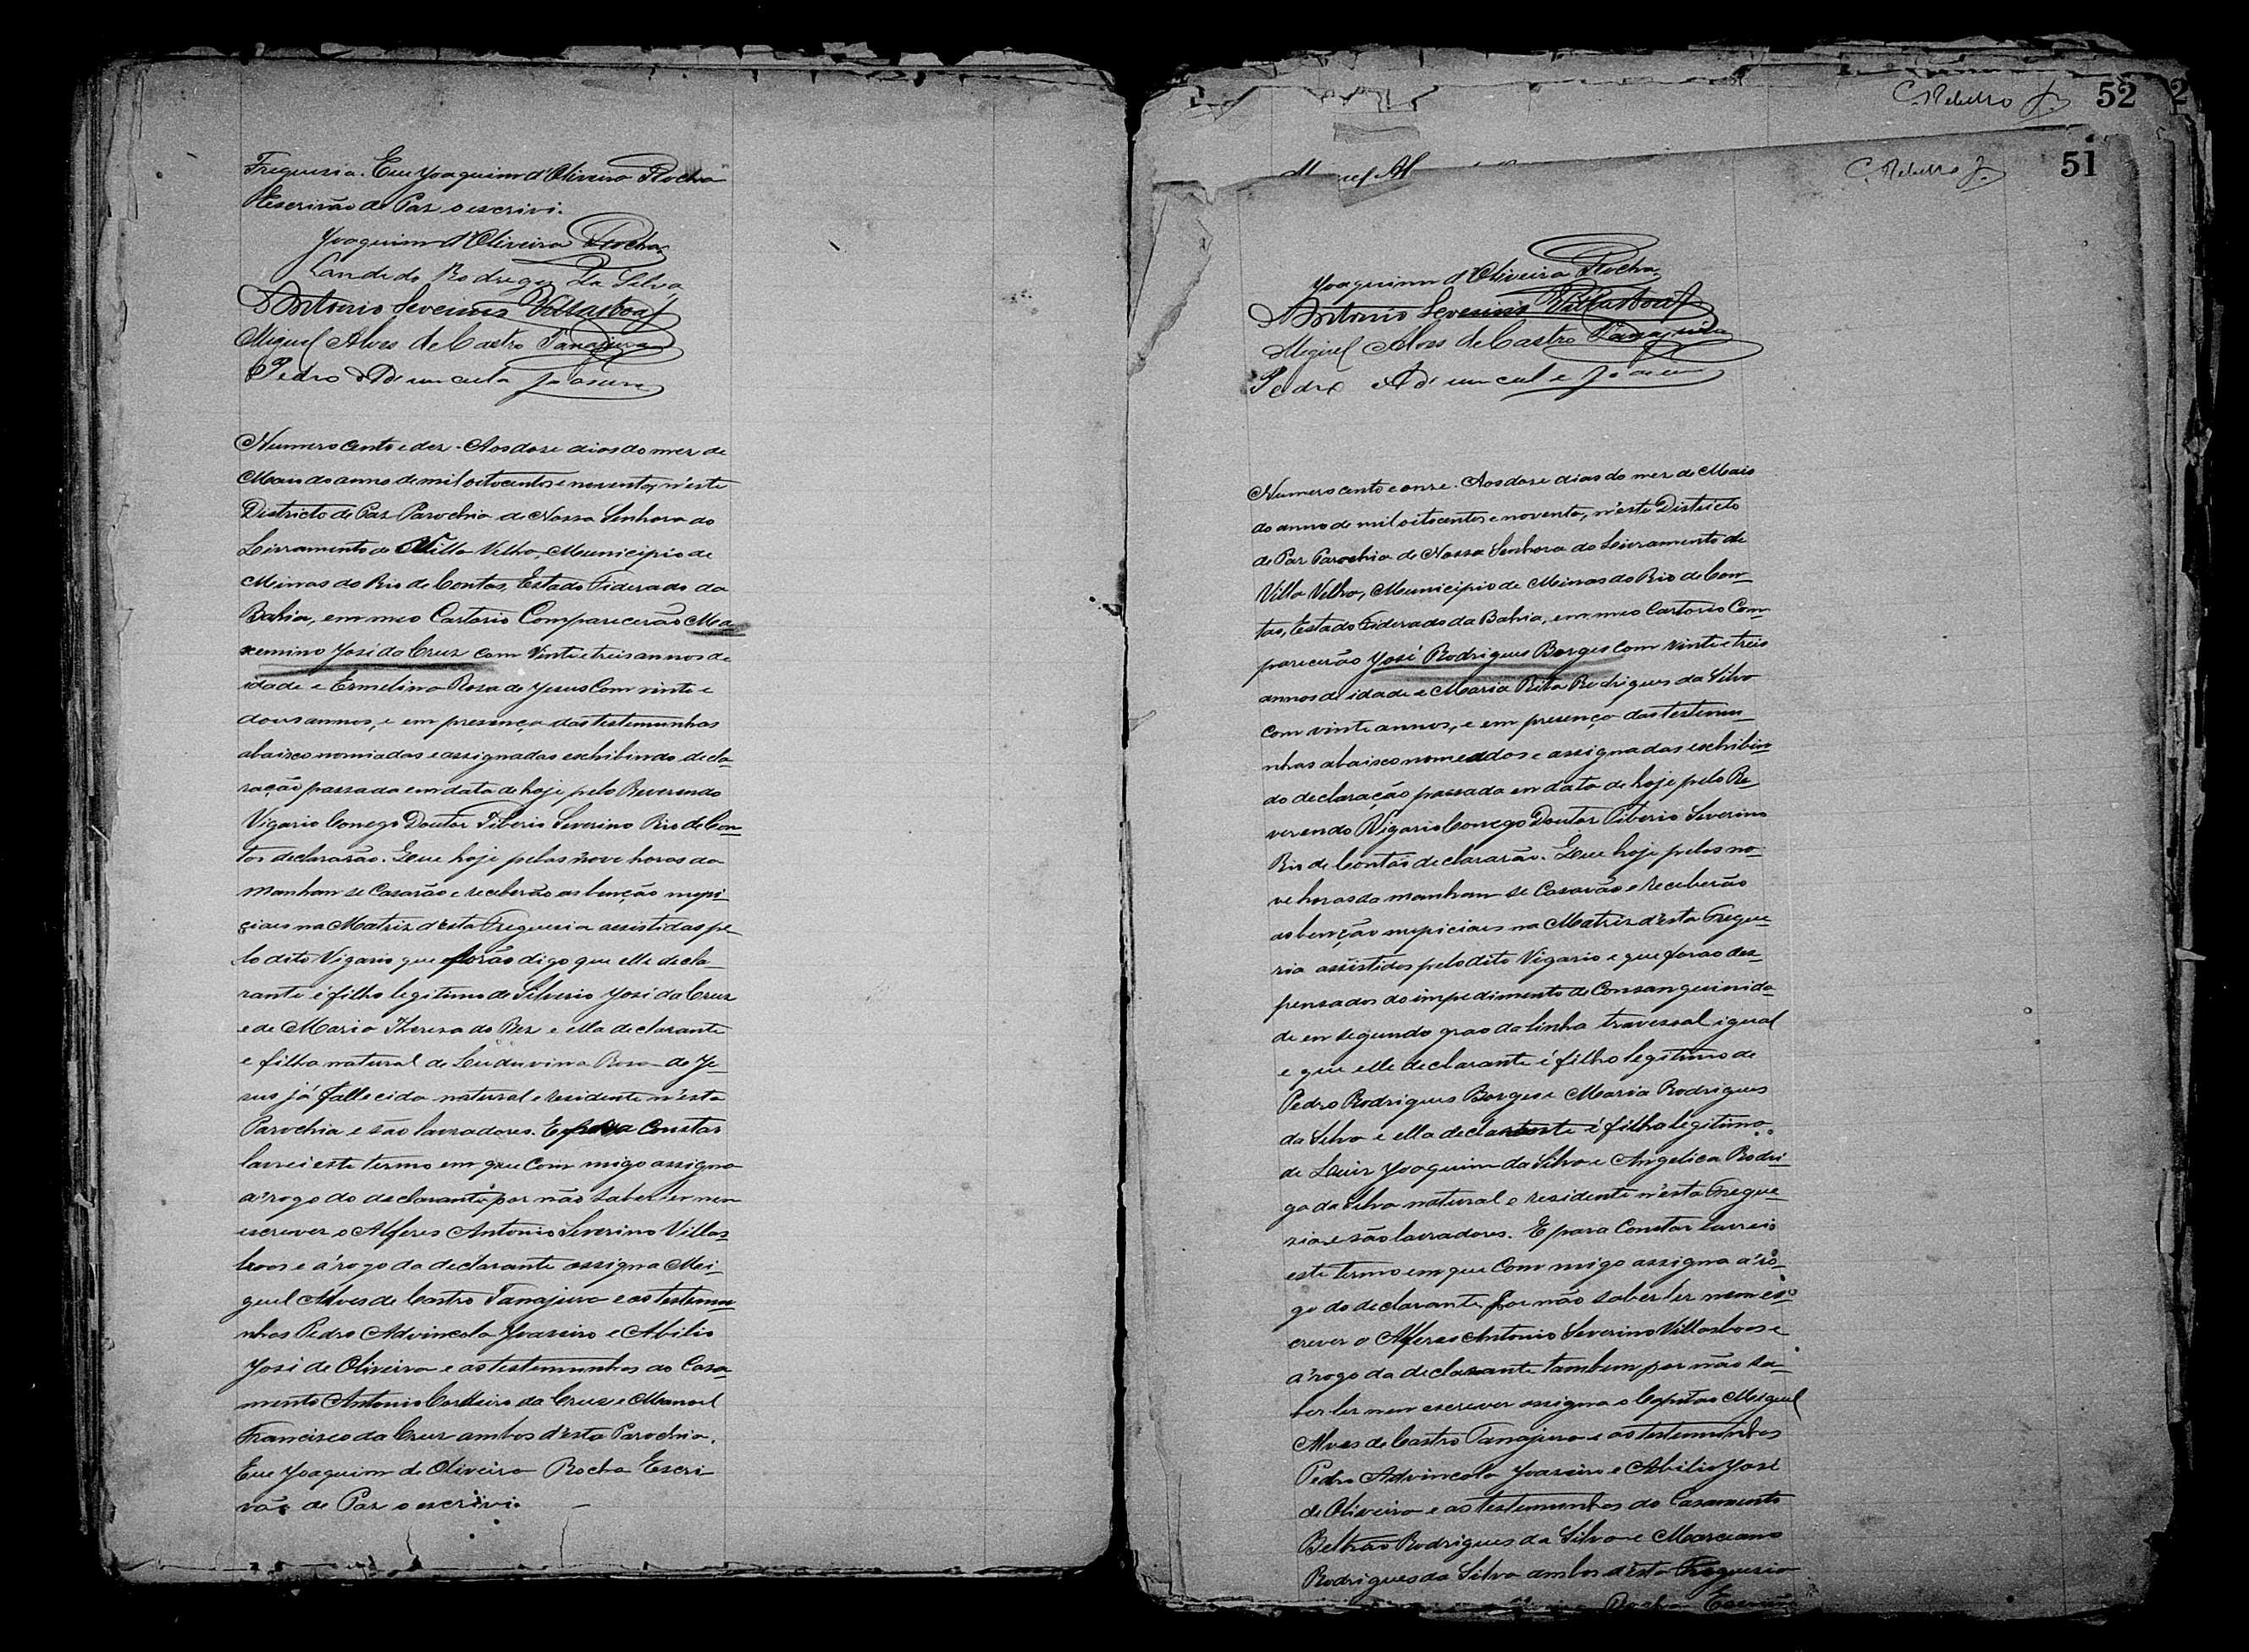 Freguesia. Eu Joaquim d'Oliveira Rocha
Escrivão de Paz o escrivi.
Joaquim d'Oliveira Rocha
Candido Rodrigues da Silva
Antonio Severino Villasboas
Miguel Alves de Castro Tanajura
Pedro Advincula Joaseiro
Numero cento e dez. Aos doze dias do mez de
Maio do anno de mil oitocentos e noventa, n'este
Districto de Paz Parochia de Nossa Senhora do
Livramento de Villa Velha, Municipio de
Minas do Rio de Contas, Estado Fiderado da
Bahia, em meo Cartorio Comparecerão Ma
xemino José da Cruz com vinte e treis annos de
idade e Ermelina Rosa de Jesus Com vinte e
dous annos, e em presença das testemunhas
abaixo nomiadas e assignadas exhibindo decla-
ração passada em data de hoje pelo Reverendo
Vigario Conego Doutor Tiberio Severino Rio de Con-
tas declararão. Que hoje pelas nove horas da
manham se Casarão e receberão as benção nupi-
ciaes na Matriz d'esta Freguesia assistidas pe-
lo dito Vigario que forão digo que elle decla-
rante é filho legitimo de Silverio José da Cruz
e de Maria Thereza do Rez e ella declarante
e filha natural de Luduvina Rosa de Je-
sus já fallecida natural e residente n'esta
Parochia e são lavradores. E para Constar
lavrei este termo em que Com migo assigna
a rogo do declarante por não saber ler nem
escrever o Alferes Antonio Severino Villas-
boas e á rogo da declarante assigna Mi-
guel Alves de Castro Tanajura e as testemu-
nhas Pedro Advincola Joaseiro e Abilio
José de Oliveira e as testemunhas do Casa-
mento Antonio Cordeiro da Cruz e Manoel
Francisco da Cruz ambos d'esta Parochia.
Eu Joaquim de Oliveira Rocha Escri
vão de Paz o escrivi.
C. Rebello Jr. 52
2
Miguel Al
C. Rebello Jr. 51
Joaquim d'Oliveira Rocha
Antonio Severino Villasboas
Miguel Alves de Castro Tanajura
Pedro Advincula Joaseiro
Numero cento e onze. Aos doze dias do mez de Maio
do anno de mil oitocentos e noventa, n'este Districto
de Paz Parochia de Nossa Senhora do Livramento de
Villa Velha, Municipio de Minas do Rio de Con-
tas, Estado Fiderado da Bahia, em meo Cartorio Com-
parecerão José Rodrigues Borges Com vinte e treis
annos de idade e Maria Rita Rodrigues da Silva
Com vinte annos, e em presença das testemu-
nhas abaixo nomeados e assignadas exhibin-
do declaração passada em data de hoje pelo Re-
verendo Vigario Conego Doutor Tiberio Severino
Rio de Contas declararão. Que hoje pelas no-
ve horas da manham se Casarão e receberão
as benção nupiciaes na Matriz d'esta Fregue-
sia assistidos pelo dito Vigario e que forao des-
pensados do impedimento de Consanguinida-
de em segundo grao da linha travessal igual
e que elle declarante é filho legitimo de
Pedro Rodrigues Borges e Maria Rodrigues
da Silva e ella declarante é filha legitima
de Luiz Joaquim da Silva e Angelica Rodri-
go da Silva natural e residente n'esta Fregue-
zia e são lavradores. E para Constar lavrei
este termo em que Com migo assigna a ro-
go do declarante por não saber ler nem es-
crever o Alferes Antonio Severino Villasboas e
a rogo da declarante tambem por não sa-
ber ler nem escrever assigna o Capitão Miguel
Alves de Castro Tanajura e as testemunhas
Pedro Advincola Joaseiro e Abilio José
de Oliveira e as testemunhas do Casamento
Beltrão Rodrigues da Silva e Marciano
Rodrigues da Silva ambos d'esta Freguesia
Rocha Escrivão